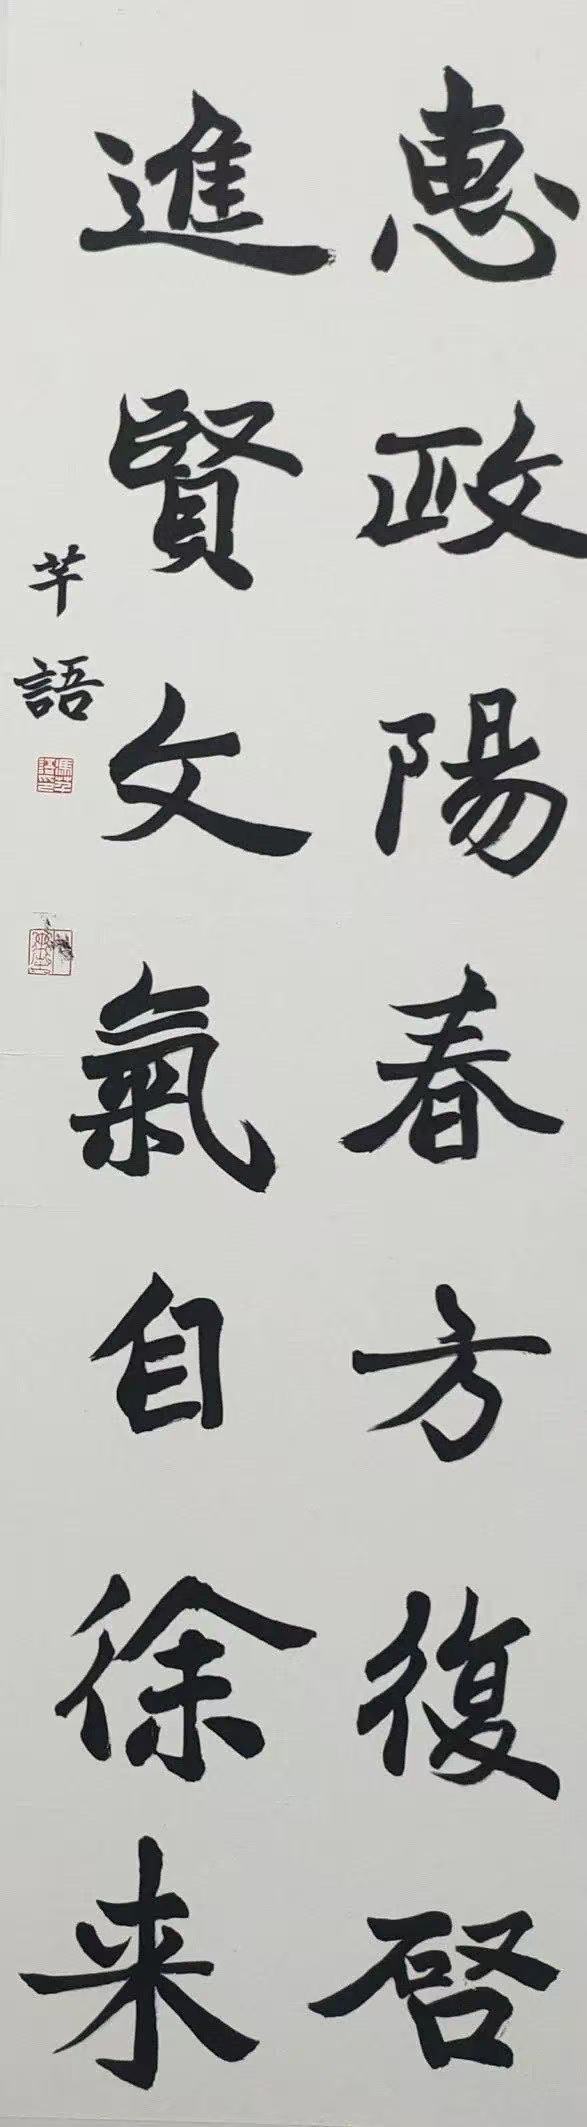 惠政陽春方復啓
進賢文氣自徐来
芊語